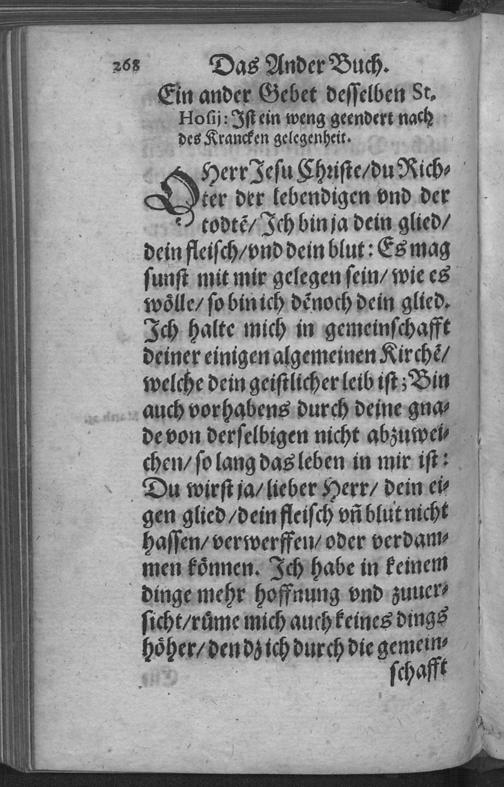 268 Das Ander Buch.
Ein ander Gebet desselben St.
Hosij: Ist ein weng geendert nach
des Krancken gelegenheit.
O Herr Jesu Christe/ du Rich⸗
ter der lebendigen vnd der
todtẽ/ Ich bin ja dein glied/
dein fleisch/ vnd dein blut: Es mag
sunst mit mir gelegen sein/ wie es
wölle/ so bin ich dẽnoch dein glied.
Ich halte mich in gemeinschafft
deiner einigen algemeinen Kirchẽ/
welche dein geistlicher leib ist; Bin
auch vorhabens durch deine gna⸗
de von derselbigen nicht abzuwei⸗
chen/ so lang das leben in mir ist:
Du wirst ja/ lieber Herr/ dein ei⸗
gen glied/ dein fleisch vñ blut nicht
hassen/ verwerffen/ oder verdam⸗
men können. Ich habe in keinem
dinge mehr hoffnung vnd zuuer⸗
sicht/ rüme mich auch keines dings
höher/ den dz ich durch die gemein⸗
schafft